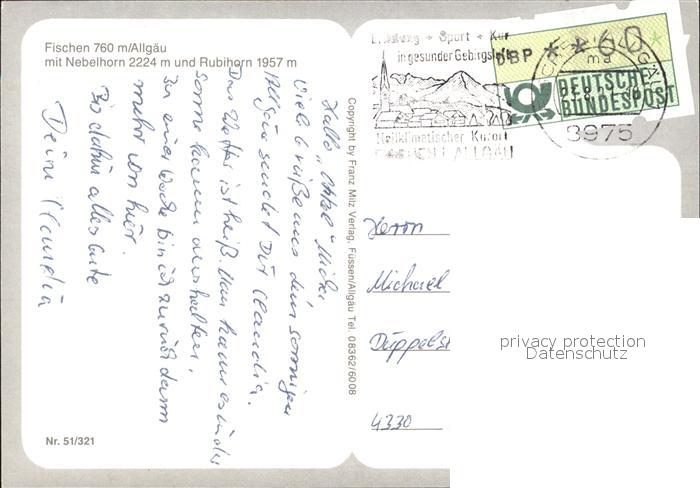 Fischen 760 m/Allgäu
mit Nebelhorn 2224 m und Rubihorn 1957 m
Hallo "Onkel" Michi
Viele Grüße aus dem sonnigen
Allgäu sendet Dir Claudia.
Das Wetter ist heiß. Man kann es in der
Sonne kaum aushalten.
In einer Woche bin ich zurück dann
mehr von hier.
Bis dahin alles Gute
Deine Claudia
Nr. 51/321
Copyright by Franz Milz Verlag, Füssen/Allgäu Tel. 08362/6008
Erholung + Sport + Kur
in gesunder Gebirgsluft
Heilklimatischer Kurort
FISCHEN I. ALLGÄU
DBP * * 60
DEUTSCHE
BUNDESPOST
8975
Herrn
Michael
Düppelst
4330
privacy protection
Datenschutz